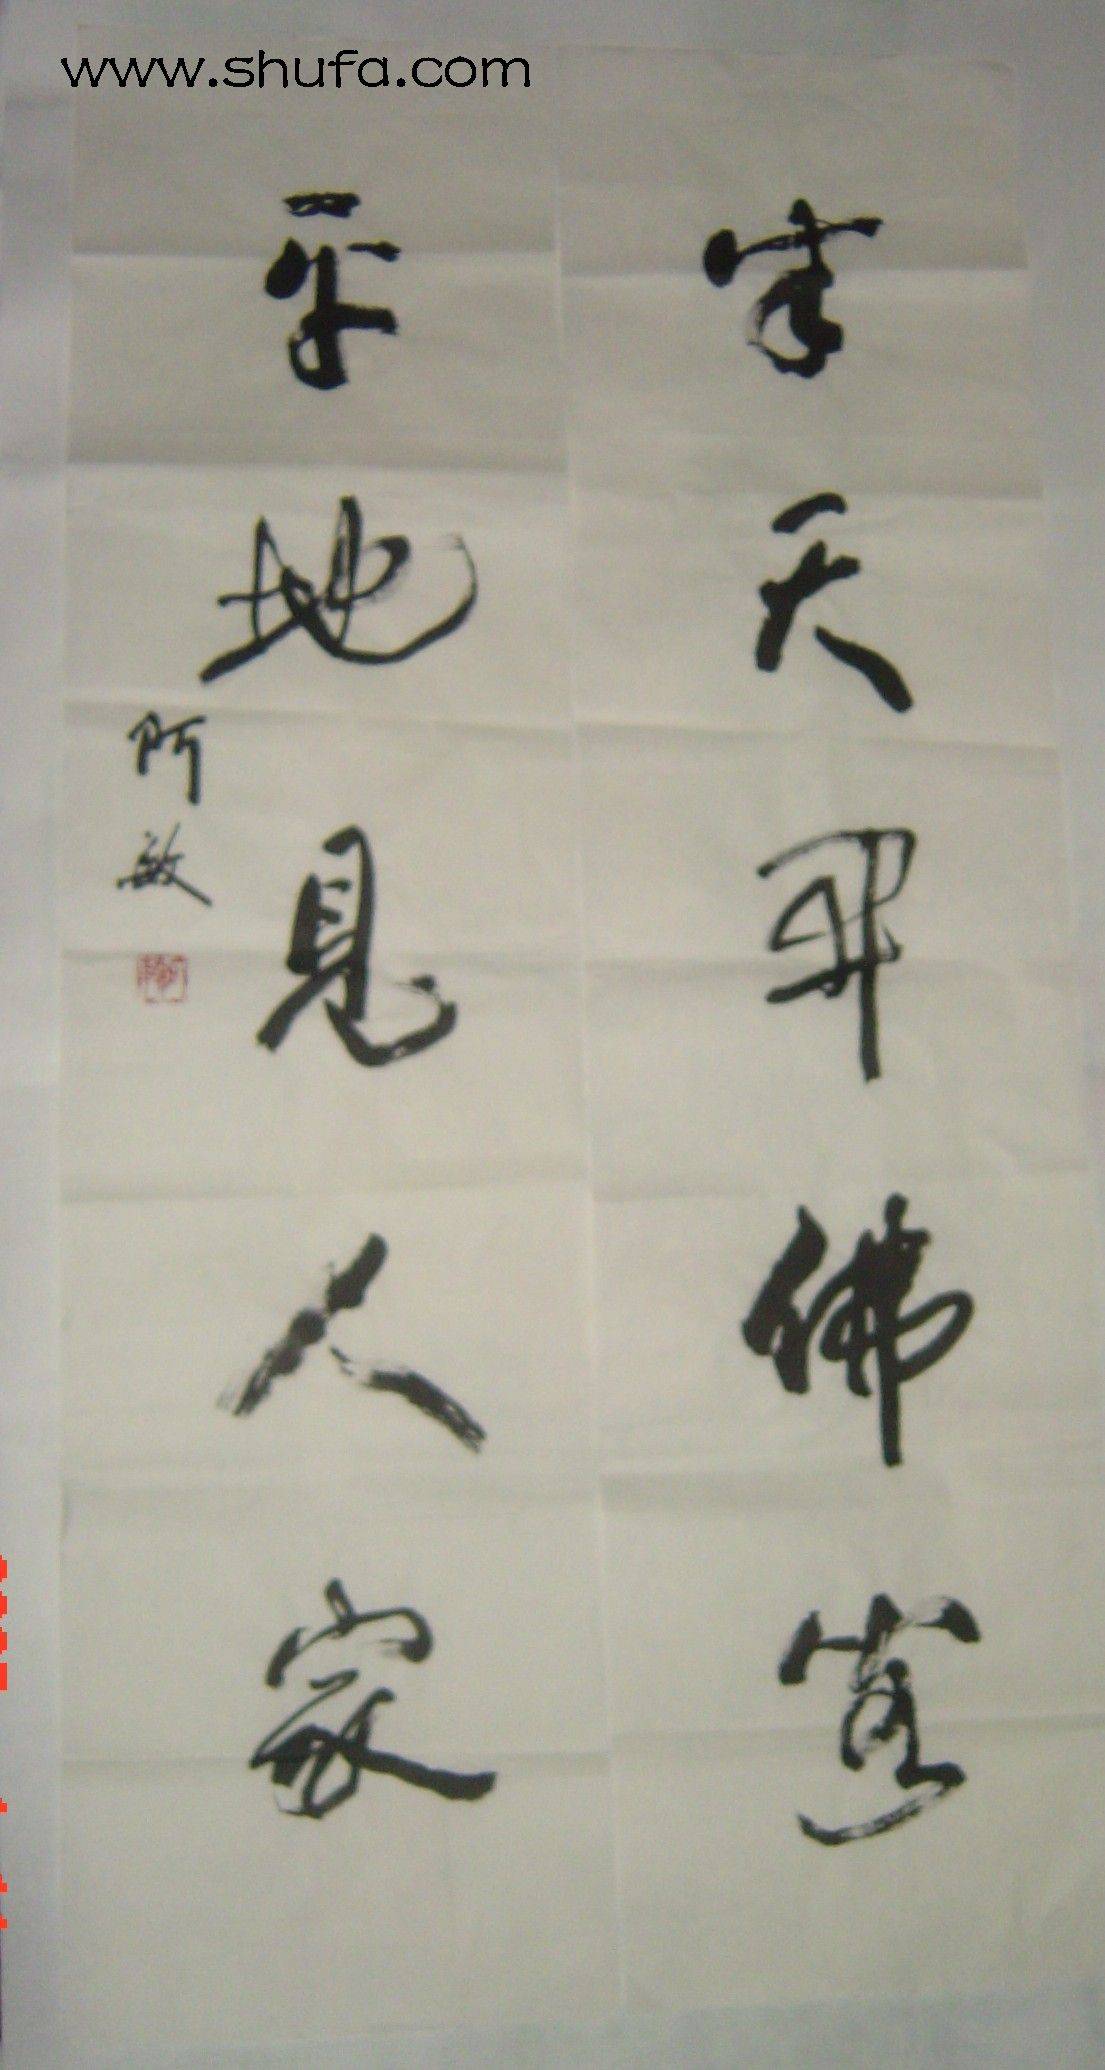 www.shufa.com
半天開佛閣
平地見人家
阿敏